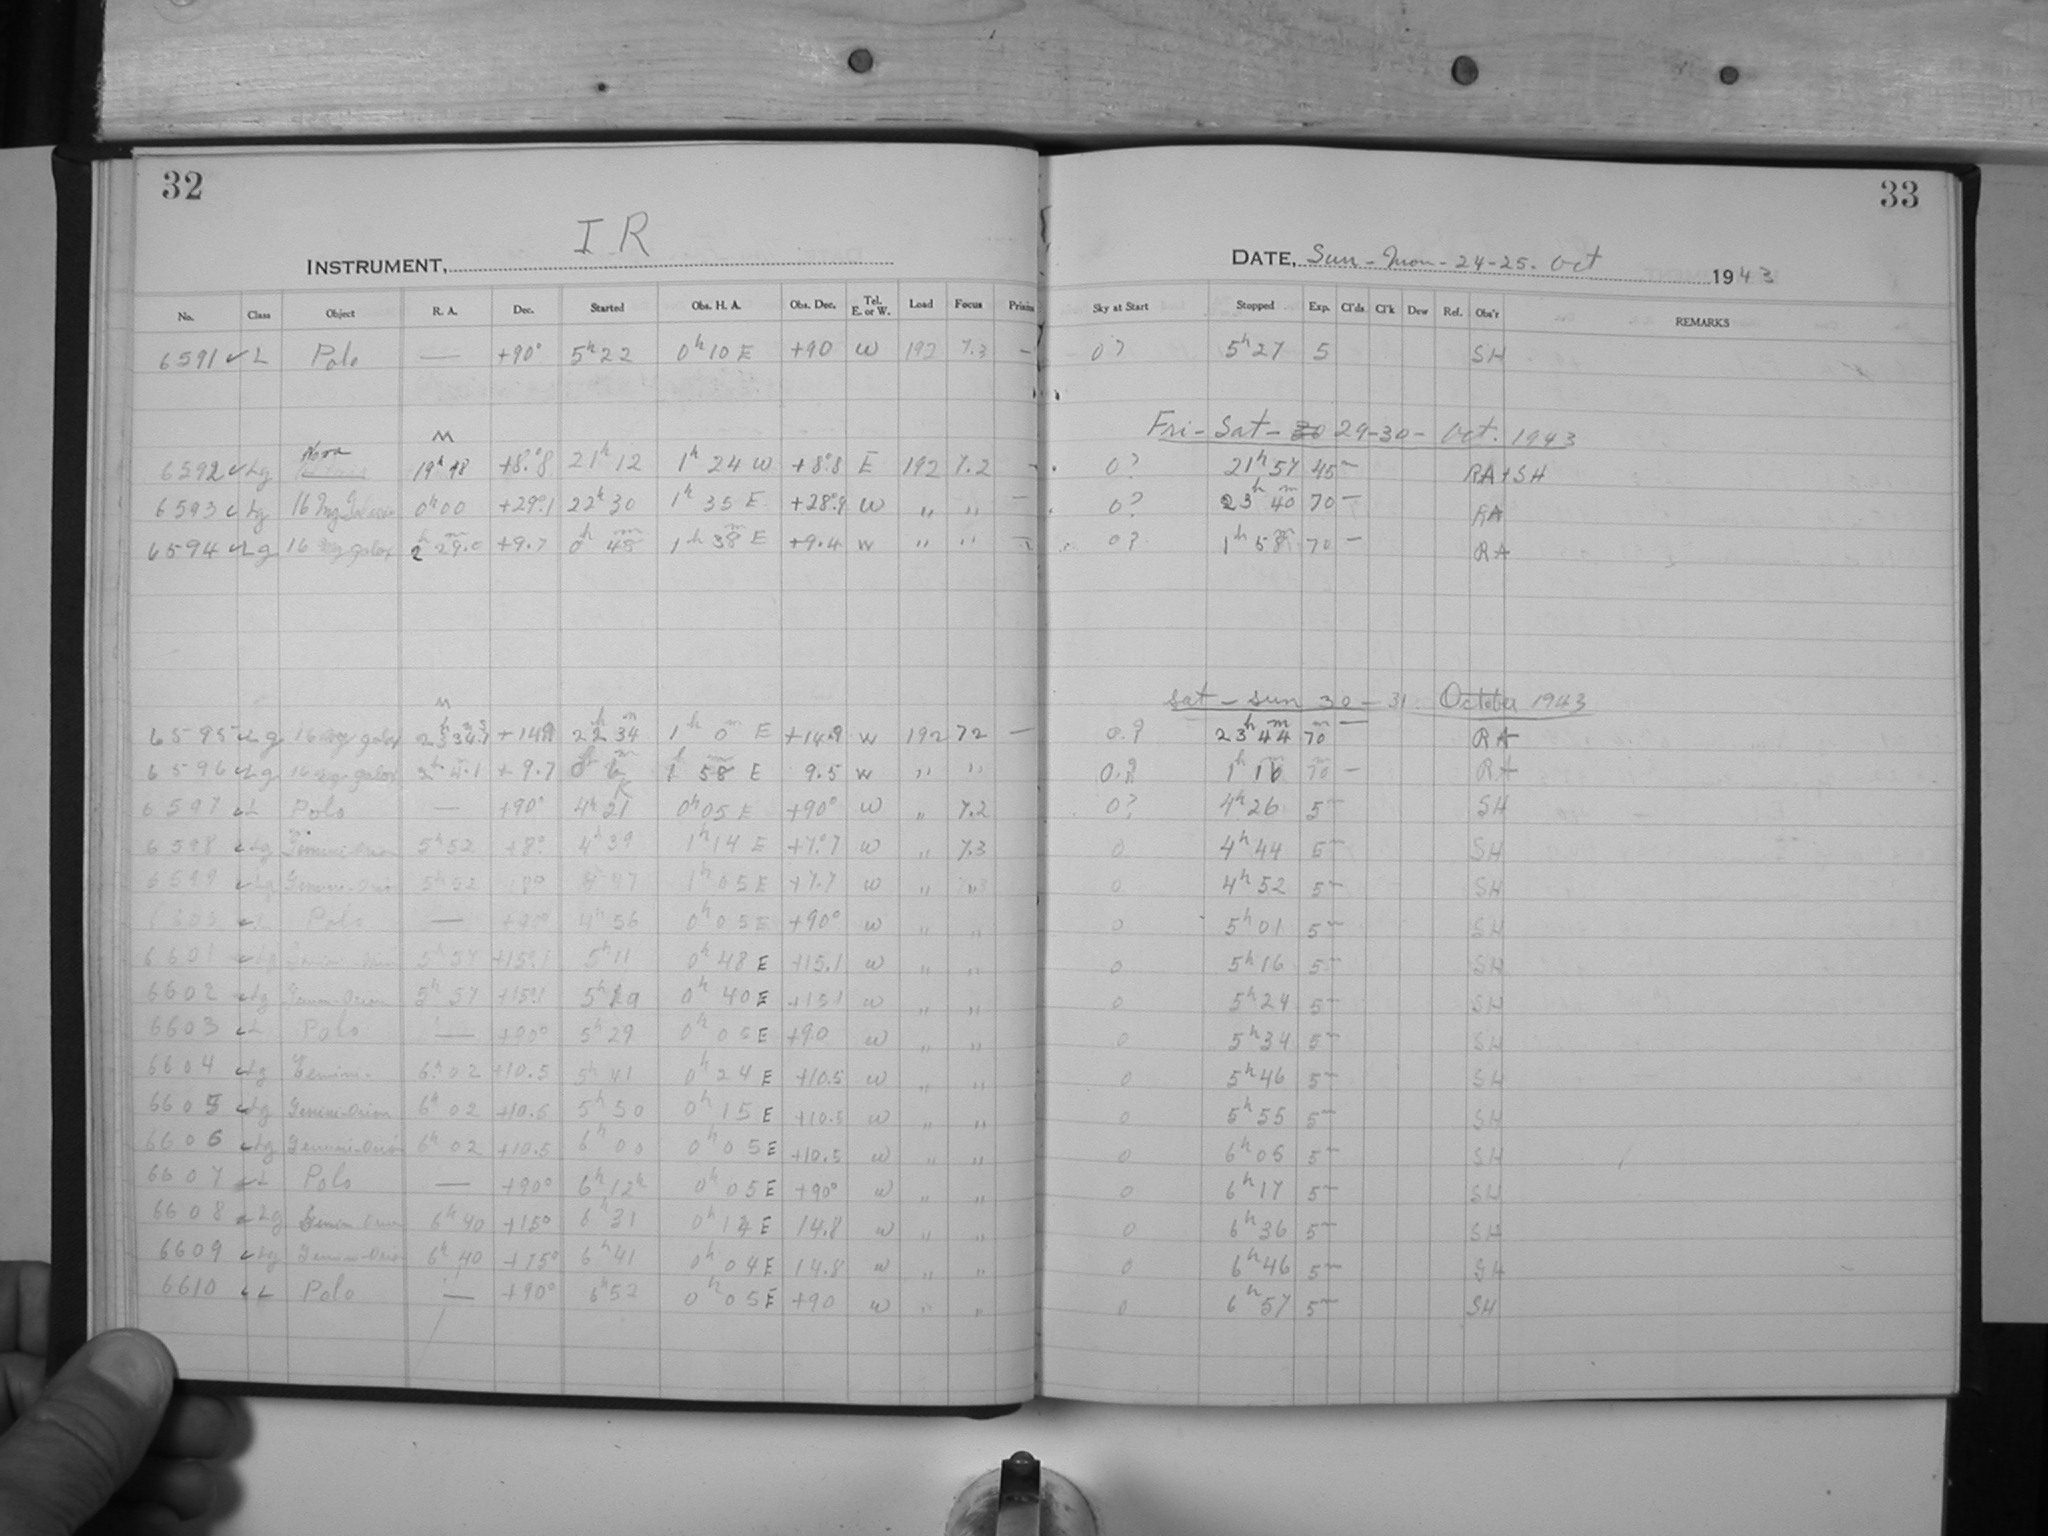 32
33
I R
INSTRUMENT,
DATE, Sun - Mon - 24-25. Oct 1943
No. Class Object R. A. Dec. Started Obs. H. A. Obs. Dec. Tel. E. or W. Load Focus Sky at Start Stopped Exp. Cl'ds Cl'k Dew Ref. Obs'r REMARKS
6591 ✓ L Pole — +90° 5h 22 0h 10 E +90 W 192 7.3 — 0? 5h 27 5 SH
Fri - Sat - 29-30 - Oct. 1943
M
6592 ✓ Lg Nova 19h 48 +8.°8 21h 12 1h 24 W +8.°8 E 192 7.2 - 0? 21h 57 45 — RA + SH
6593 ✓ Lg 16 Mg 0h 00 +29.°1 22h 30 1h 35 E +28.°9 W " " — 0? 23h 40m 70 — RA
6594 ✓ Lg 16 mg galax 2h 29.m +9.7 0h 48m 1h 38m E +9.4 W " " — 0? 1h 58m 70 — RA
Sat - Sun 30 - 31 October 1943
M
6595 ✓ Lg 16 mg galax +14.9 22h 34m 1h 0m E +14.9 W 192 72 — 0.? 23h 44m 70m — RA
6596 ✓ Lg 16 mg galax 2h 4.m1 +9.7 0h 6m 1h 58m E 9.5 W " " 0.? 1h 16m 70m — RA
6597 ✓ L Pole — +90° 4h 21 0h 05 E +90° W " 7.2 0? 4h 26 5 — SH
6598 ✓ Lg Gemini-Orion 5h 52 +8° 4h 39 1h 14 E +7.°7 W " 7.3 0 4h 44 5 — SH
6599 ✓ Lg Gemini-Orion 5h 52 +8° 4h 47 1h 05 E +7.7 W " " 0 4h 52 5 — SH
6600 ✓ L Pole — +90° 4h 56 0h 05 E +90° W " " 0 5h 01 5 — SH
6601 ✓ Lg Gemini-Orion 5h 57 +15.°1 5h 11 0h 48 E +15.1 W " " 0 5h 16 5 — SH
6602 ✓ Lg Gemini-Orion 5h 57 +15.°1 5h 19 0h 40 E +15.1 W " " 0 5h 24 5 — SH
6603 ✓ L Pole — +90° 5h 29 0h 05 E +90 W " " 0 5h 34 5 — SH
6604 ✓ Lg Gemini- 6h 02 +10.5 5h 41 0h 24 E +10.5 W " " 0 5h 46 5 — SH
6605 ✓ Lg Gemini-Orion 6h 02 +10.5 5h 50 0h 15 E +10.5 W " " 0 5h 55 5 — SH
6606 ✓ Lg Gemini-Orion 6h 02 +10.5 6h 00 0h 05 E +10.5 W " " 0 6h 05 5 — SH
6607 ✓ L Pole — +90° 6h 12h 0h 05 E +90° W " " 0 6h 17 5 — SH
6608 ✓ Lg Gemini-Orion 6h 40 +15° 6h 31 0h 14 E 14.8 W " " 0 6h 36 5 — SH
6609 ✓ Lg Gemini-Orion 6h 40 +15° 6h 41 0h 04 E 14.8 W " " 0 6h 46 5 — SH
6610 ✓ L Pole — +90° 6h 52 0h 05 E +90 W " " 0 6h 57 5 — SH